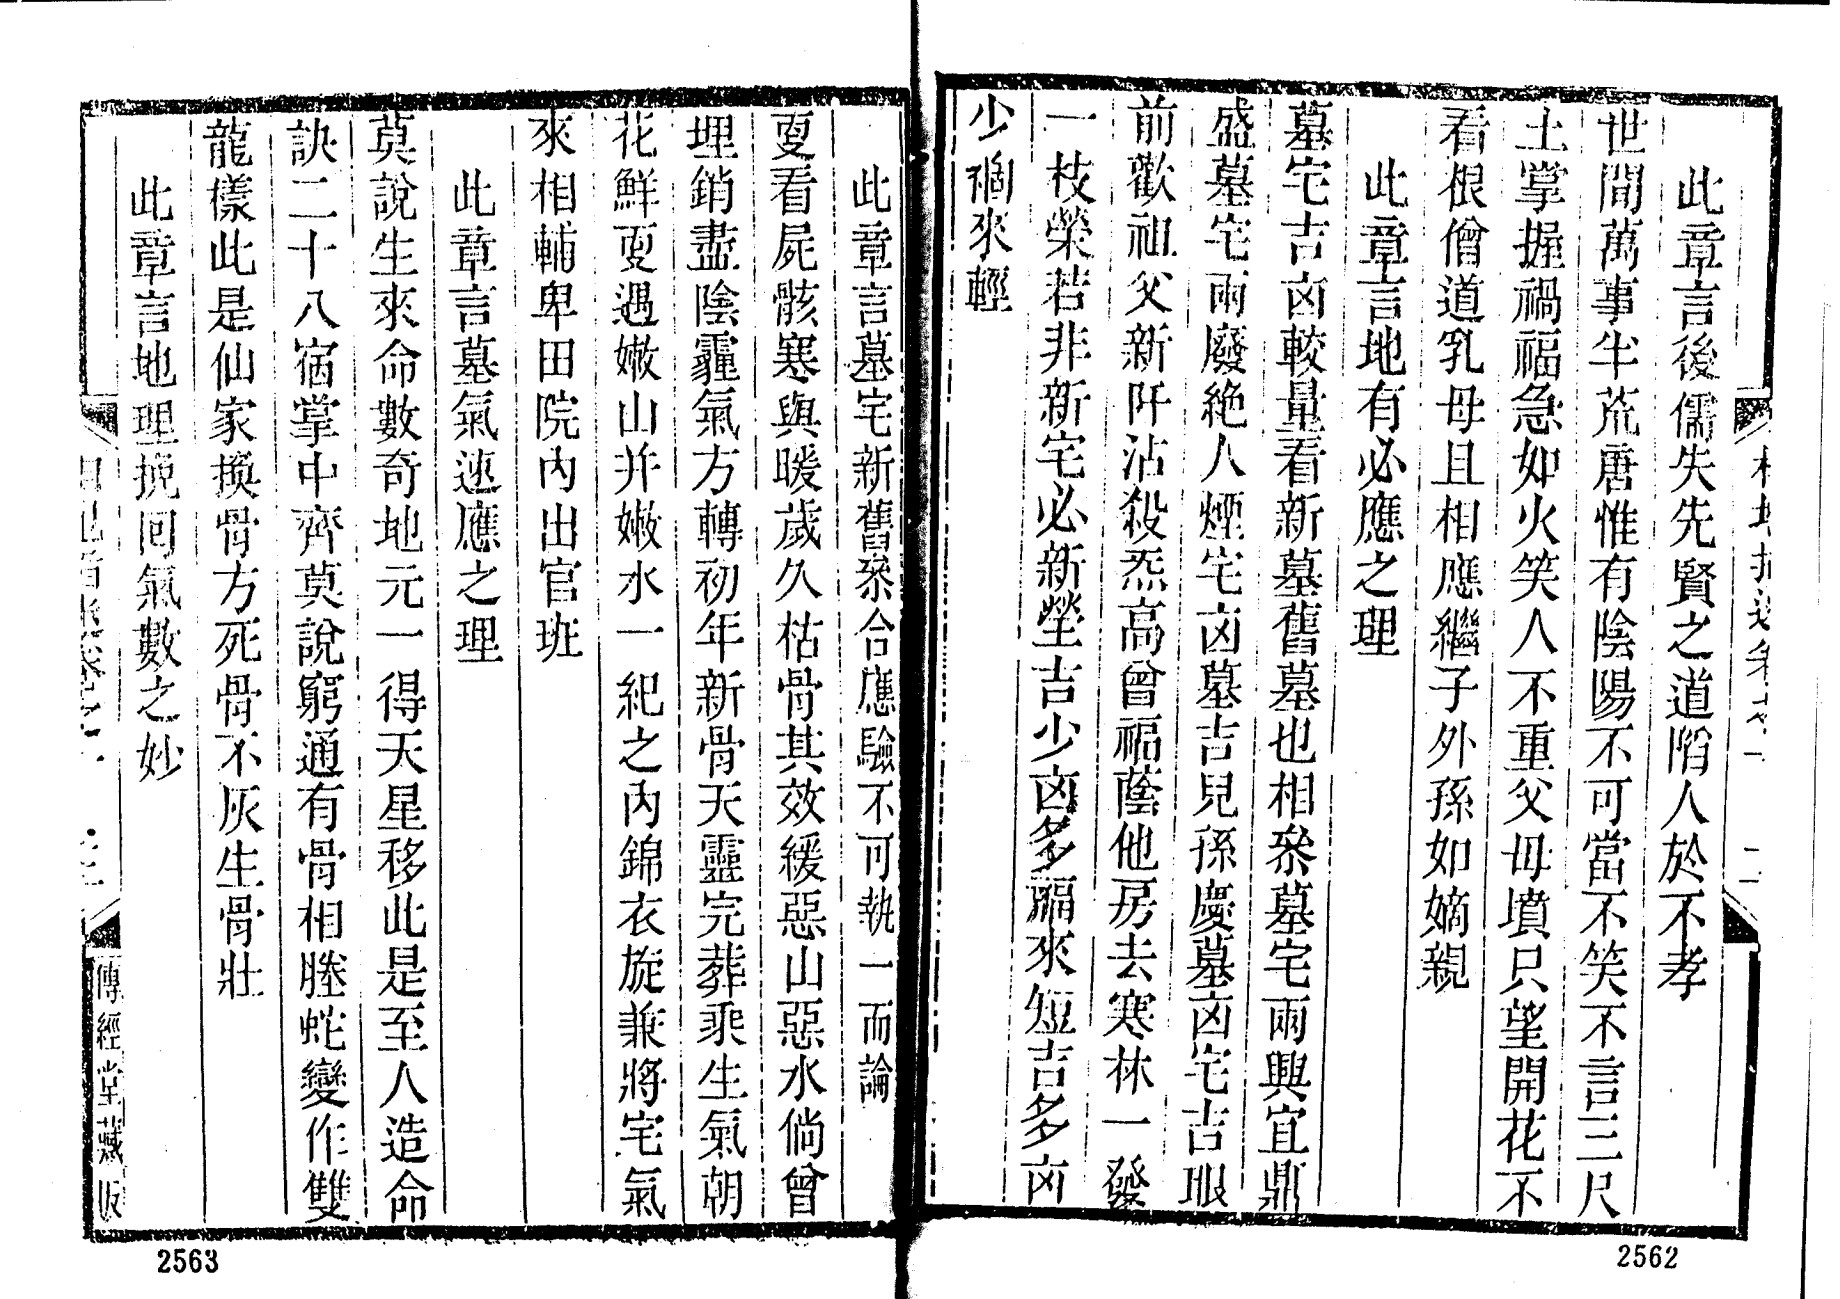 此章言後儒失先賢之道陷人於不孝
世間萬事半荒唐惟有陰陽不可當不笑不言三尺
土掌握禍福急如火笑人不重父母墳只望開花不
看根僧道乳母且相應繼子外孫如嫡親
此章言地有必應之理
墓宅吉凶較量看新墓舊墓也相叅墓宅兩興宜鼎
盛墓宅兩廢絶人煙宅凶墓吉兒孫慶墓凶宅吉眼
前歡祖父新阡沾殺炁高曾福蔭他房去寒林一發
一枝榮若非新宅必新塋吉少凶多福來短吉多凶
少禍來輕
2562
此章言墓宅新舊叅合應驗不可執一而論
更看屍骸寒與暖歲久枯骨其效緩惡山惡水倘曾
埋銷盡陰霾氣方轉初年新骨天靈完葬乘生氣朝
花鮮更遇嫩山并嫩水一紀之內錦衣旋兼將宅氣
來相輔卑田院內出官班
此章言墓氣速應之理
莫說生來命數奇地元一得天星移此是至人造命
訣二十八宿掌中齊莫說窮通有骨相螣蛇變作雙
龍樣此是仙家換骨方死骨不灰生骨壯
此章言地理挽回氣數之妙
傳經堂藏版
2563